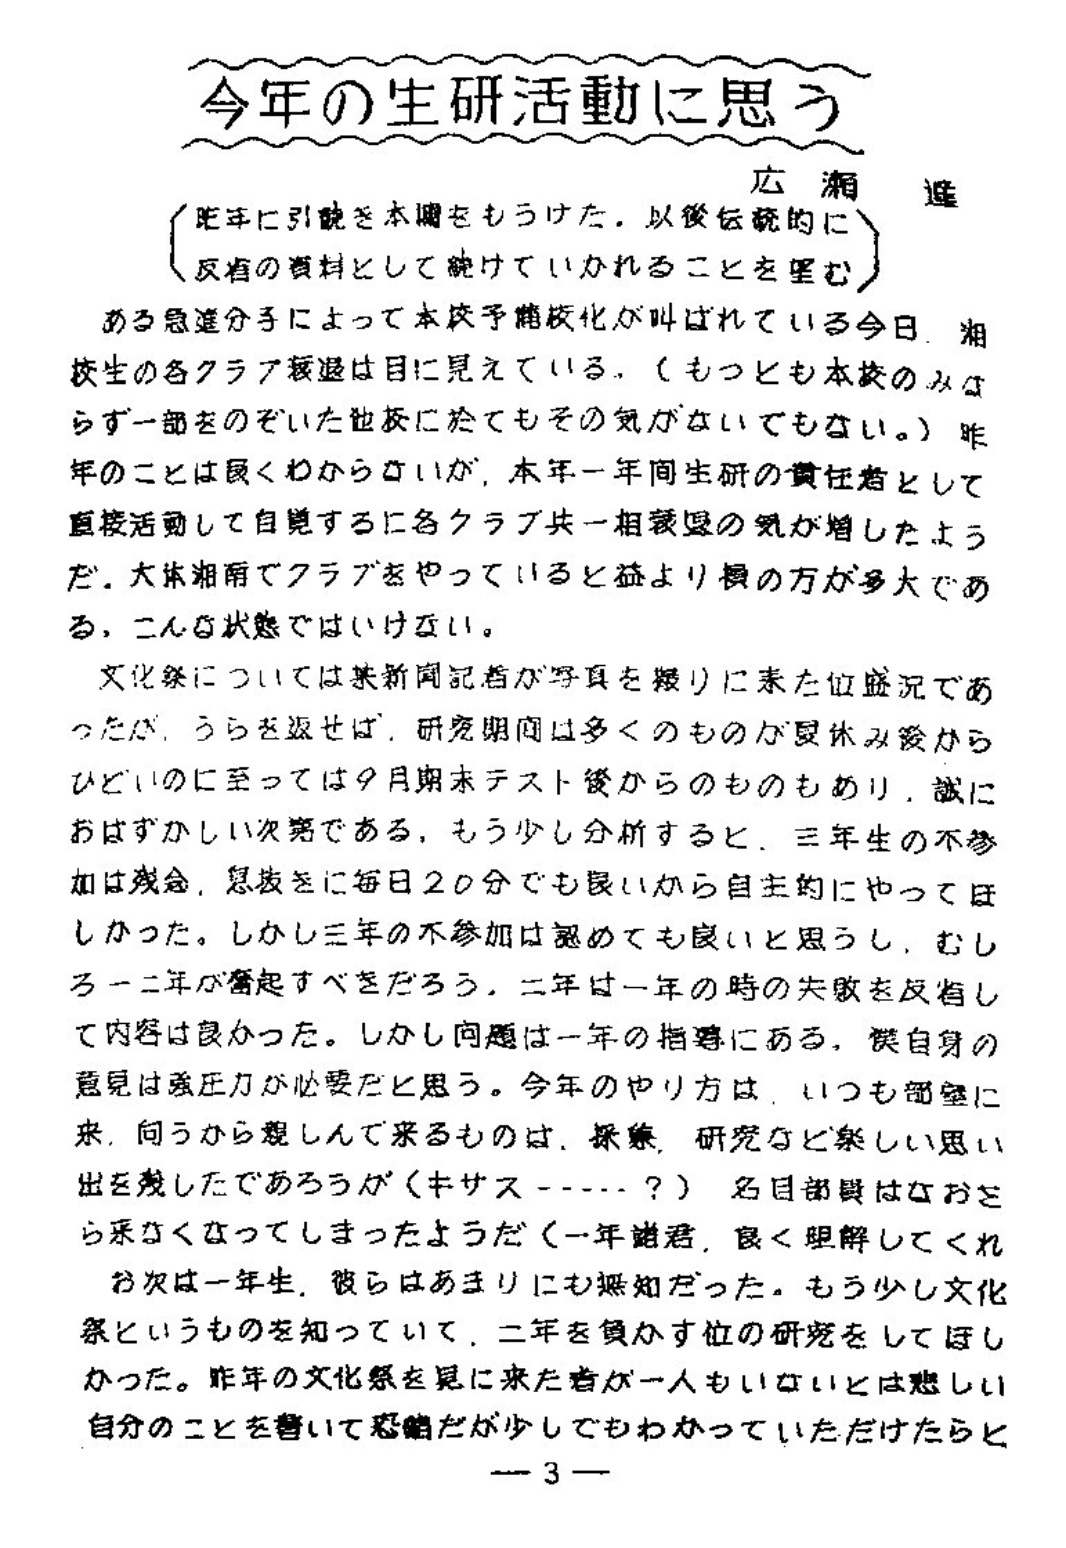 今年の生研活動に思う
広瀬 進
昨年に引続き本欄をもうけた。以後伝統的に
反省の資料として続けていかれることを望む
ある急進分子によって本校予備校化が叫ばれている今日、湘
校生の各クラブ衰退は目に見えている。(もっとも本校のみな
らず一部をのぞいた他校に於てもその気がないでもない。)昨
年のことは良くわからないが、本年一年間生研の責任者として
直接活動して自覚するに各クラブ共一相衰退の気が増したよう
だ。大体湘南でクラブをやっていると益より損の方が多大であ
る。こんな状態ではいけない。
文化祭については某新聞記者が写真を撮りに来た位盛況であ
ったが、うらを返せば、研究期間は多くのものが夏休み後から
ひどいのに至っては9月期末テスト後からのものもあり、誠に
おはずかしい次第である。もう少し分析すると、三年生の不参
加は残念、息抜きに毎日20分でも良いから自主的にやってほ
しかった。しかし三年の不参加は認めても良いと思うし、むし
ろ一二年が奮起すべきだろう。二年は一年の時の失敗を反省し
て内容は良かった。しかし問題は一年の指導にある。僕自身の
意見は強圧力が必要だと思う。今年のやり方は、いつも部室に
来、向うから親しんで来るものは、採集、研究など楽しい思い
出を残したであろうが(キザス-----?) 名目部員はなおさ
ら来なくなってしまったようだ(一年諸君、良く理解してくれ
お次は一年生、彼らはあまりにも無知だった。もう少し文化
祭というものを知っていて、二年を負かす位の研究をしてほし
かった。昨年の文化祭を見に来た者が一人もいないとは悲しい
自分のことを書いて恐縮だが少しでもわかっていただけたらと
— 3 —